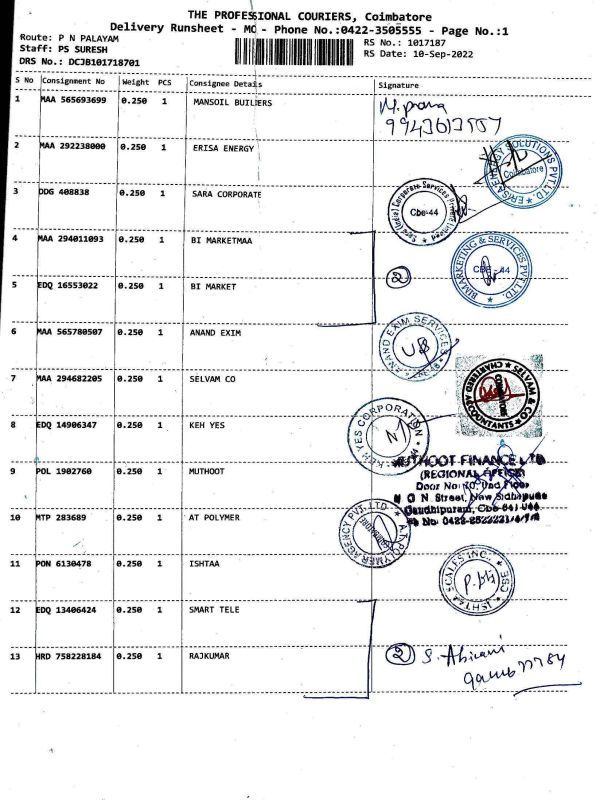 THE PROFESSIONAL COURIERS, Coimbatore
Delivery Runsheet - MC - Phone No.:0422-3505555 - Page No.:1
Route: P N PALAYAM
Staff: PS SURESH
DRS No.: DCJB101718701
RS No.: 1017187
RS Date: 10-Sep-2022
S No Consignment No Weight PCS Consignee Details Signature
1 MAA 565693699 0.250 1 MANSOIL BUILIERS
2 MAA 292238000 0.250 1 ERISA ENERGY
Coimbatore
3 DDG 408838 0.250 1 SARA CORPORATE
Cbe-44
4 MAA 294011093 0.250 1 BI MARKETMAA
BI MARKETING & SERVICES PVT.LTD.
CBE - 44
2
5 EDQ 16553022 0.250 1 BI MARKET
6 MAA 565780507 0.250 1 ANAND EXIM
ANAND EXIM SERVICES
7 MAA 294682205 0.250 1 SELVAM CO
SELVAM & CO
CHARTERED ACCOUNTANTS
8 EDQ 14906347 0.250 1 KEH YES
KEH YES CORPORATION
9 POL 1902760 0.250 1 MUTHOOT
MUTHOOT FINANCE LTD
(REGIONAL OFFICE)
10 MTP 283689 0.250 1 AT POLYMER
A.T.POLYMER AGENCY PVT.LTD.
11 PON 6130478 0.250 1 ISHTAA
ISHTAA SCALES INC.
12 EDQ 13406424 0.250 1 SMART TELE
13 HRD 758228184 0.250 1 RAJKUMAR
2 S. Abirami